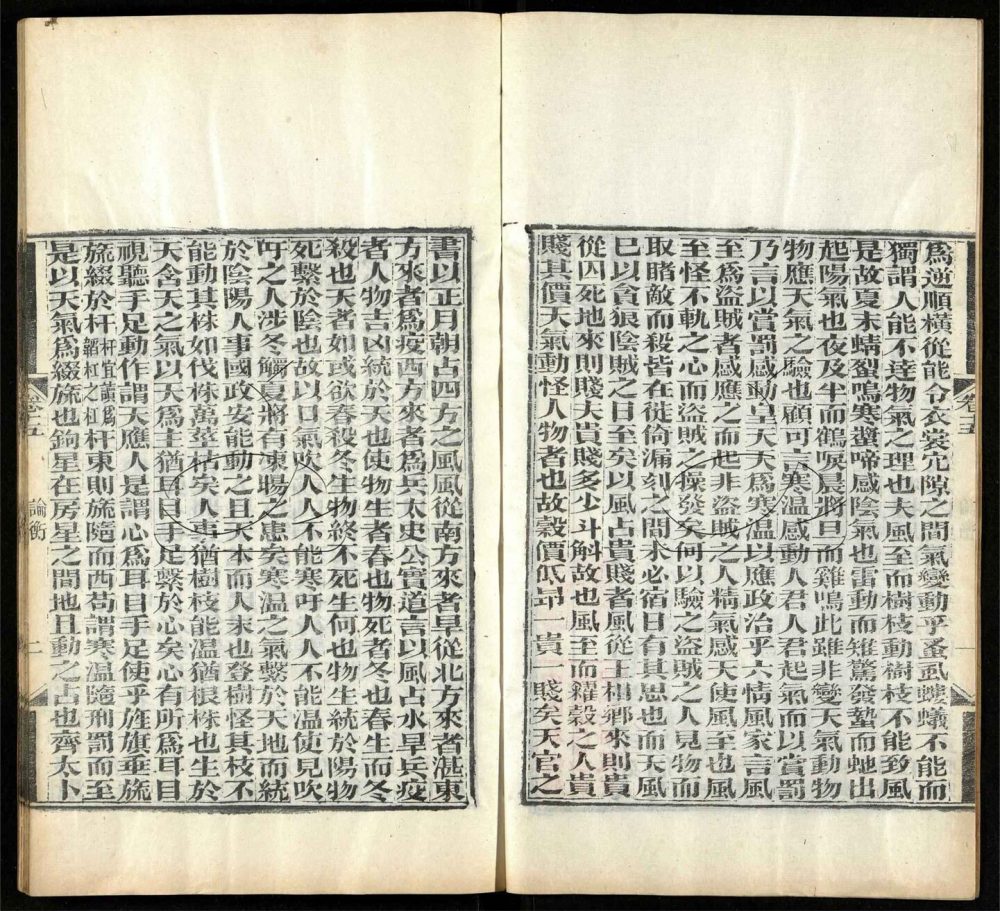 卷十五
為逆順橫從能令衣裳穴隙之間氣變動乎蚤虱螻蟻不能而
獨謂人能不達物氣之理也夫風至而樹枝動樹枝不能致風
是故夏末蜻鳴寒螿啼感陰氣也雷動而雉驚發蟄而虵出
起陽氣也夜及半而鶴唳晨將旦而雞鳴此雖非變天氣動物
物應天氣之驗也顧可言寒温感動人君人君起氣而以賞罰
乃言以賞罰感動皇天天為寒温以應政治乎六情風家言風
至為盜賊者感應之而起非盜賊之人精氣感天使風至也風
至怪不軌之心而盜賊之操發矣何以驗之盜賊之人見物而
取睹敵而殺皆在徙倚漏刻之間未必宿日有其思也而天風
巳以貪狼陰賊之日至矣以風占貴賤者風從王相鄉來則貴
從囚死地來則賤夫貴賤多少斗斛故也風至而糴穀之人貴
賤其價天氣動怪人物者也故穀價低昂一貴一賤矣天官之
書以正月朝占四方之風風從南方來者旱從北方來者湛東
方來者為疫西方來者為兵太史公實道言以風占水旱兵疫
者人物吉凶統於天也使物生者春也物死者冬也春生而冬
殺也天者如或欲春殺冬生物終不死生何也物生統於陽物
死繫於陰也故以口氣吹人人不能寒吁人人不能温使見吹
吁之人涉冬觸夏將有凍暘之患矣寒温之氣繫於天地而統
於陰陽人事國政安能動之且天本而人末也登樹怪其枝不
能動其株如伐株萬莖枯矣人事猶樹枝能温猶根株也生於
天含天之氣以天為主猶耳目手足繫於心矣心有所為耳目
視聽手足動作謂天應人是謂心為耳目手足使乎旌旗垂旒
旒綴於杆杆宜讀為韜杠之杠杆東則旒隨而西苟謂寒温隨刑罰而至
是以天氣為綴旒也鉤星在房星之間地且動之占也齊太卜
卷十五 論衡 二